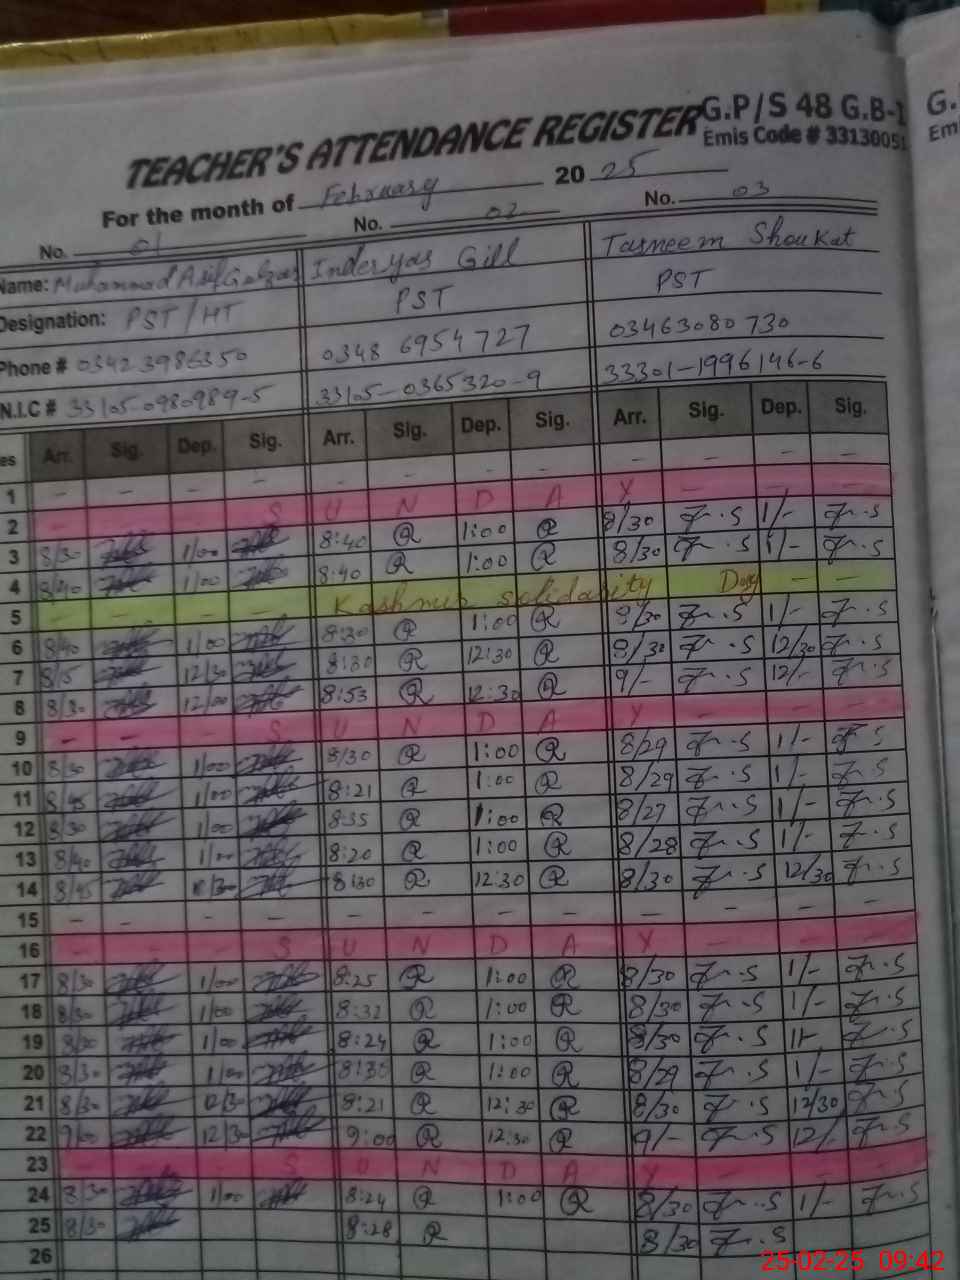 G.P/S 48 G.B-1
G.
TEACHER'S ATTENDANCE REGISTER
Emis Code # 3313005
Emi
For the month of February 20 25
No. 01 No. 02 No. 03
Name: Muhammad Asif Inderyas Gill Tasneem Shoukat
Designation: PST/HT PST PST
Phone # 03423986350 0348 6954727 03463080730
N.I.C # 33105-0980989-5 33105-0365320-9 33301-1996146-6
es Arr. Sig. Dep. Sig. Arr. Sig. Dep. Sig. Arr. Sig. Dep. Sig.
1 - - - - - - - - - - - -
2 - - - S U N D A Y - - -
3 8/30 1/00 8:40 R 1:00 R 8/30 1/-
4 8/40 1/00 8:40 R 1:00 R 8/30 1/-
5 - - - - Kashmir solidarity Day - -
6 8/40 1/00 8:30 R 1:00 R 8/30 1/-
7 8/15 12/30 8:30 R 12:30 R 8/30 12/30
8 8/30 12/00 8:53 R 12:30 R 9/- 12/-
9 - - - S U N D A Y - - -
10 8/30 1/00 8/30 R 1:00 R 8/29 1/-
11 8/45 1/00 8:21 R 1:00 R 8/29 1/-
12 8/30 1/00 8:35 R 1:00 R 8/27 1/-
13 8/40 1/00 8:20 R 1:00 R 8/28 1/-
14 8/45 8:30 R 12:30 R 8/30 12/30
15 - - - - - - - - - - - -
16 - - - S U N D A Y - - -
17 8/30 1/00 8:25 R 1:00 R 8/30 1/-
18 8/30 1/00 8:32 R 1:00 R 8/30 1/-
19 8/30 1/00 8:24 R 1:00 R 8/30 1/-
20 8/30 1/00 8:30 R 1:00 R 8/29 1/-
21 8/30 12/30 8:21 R 12:30 R 8/30 12/30
22 9/00 12/30 9:00 R 12:30 R 9/- 12/-
23 - - - S U N D A Y - - -
24 8/30 1/00 8:24 R 1:00 R 8/30 1/-
25 8/30 8:28 R 8/30
26
25-02-25 09:42